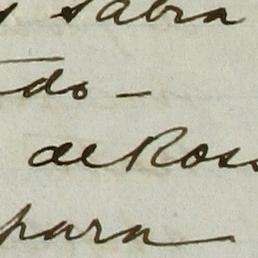 y sabra
do -
de Ross
para